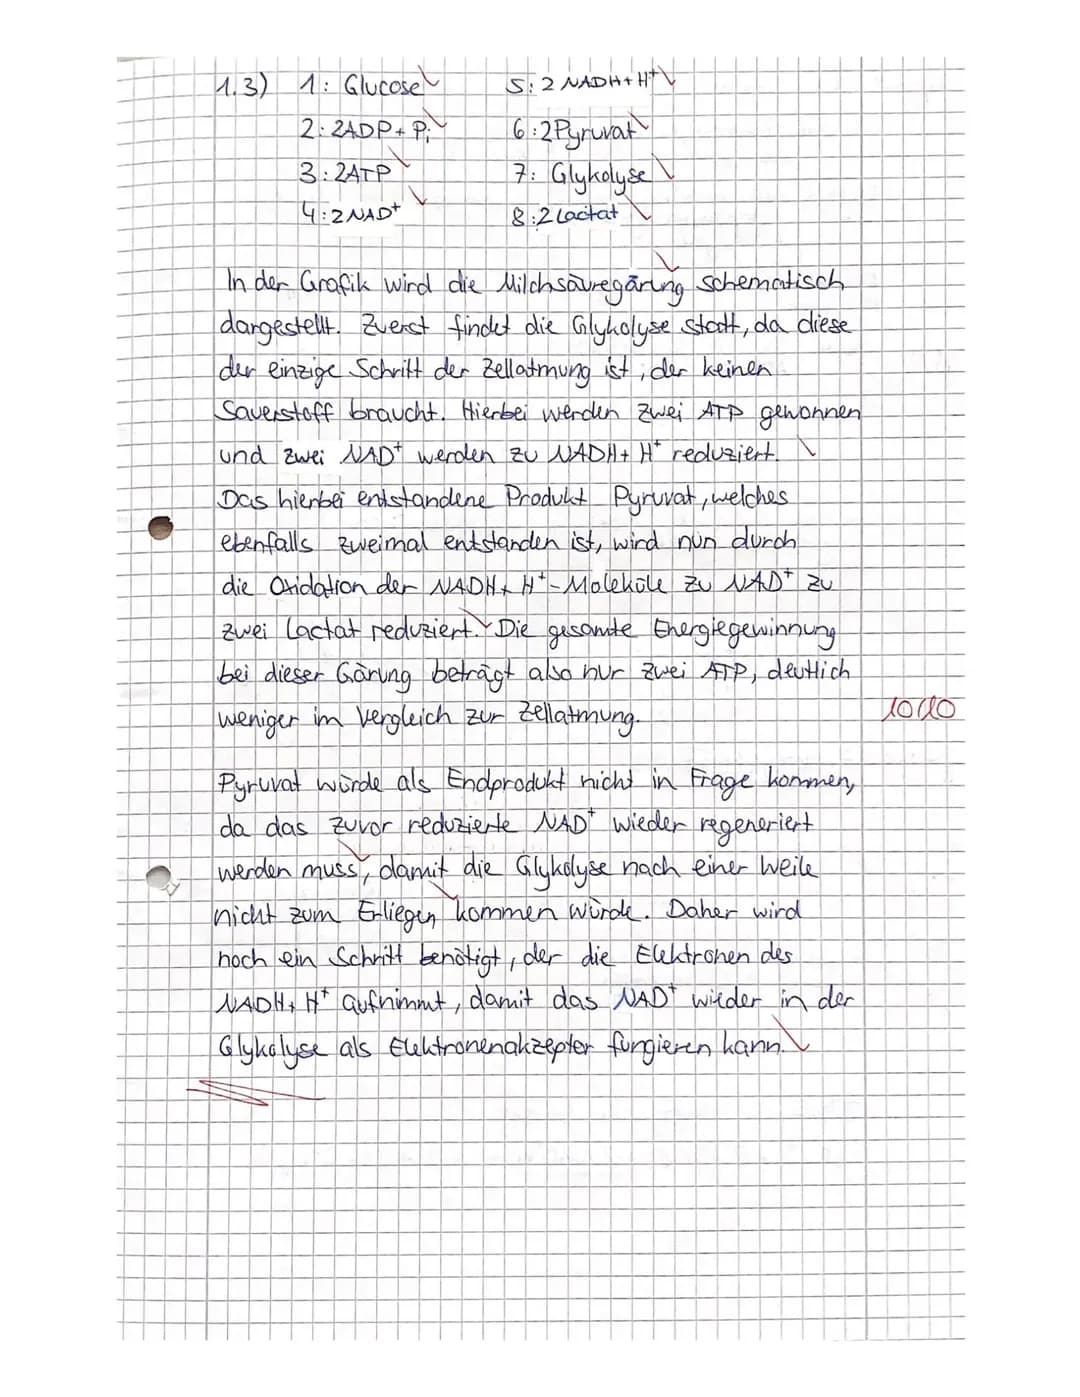 1.3) 1: Glucose 5: 2 NADH+H⁺
2: 2ADP+ Pi 6: 2Pyruvat
3: 2ATP 7: Glykolyse
4: 2NAD⁺ 8: 2 Lactat
In der Grafik wird die Milchsäuregärung schematisch
dargestellt. Zuerst findet die Glykolyse statt, da diese
der einzige Schritt der Zellatmung ist, der keinen
Sauerstoff braucht. Hierbei werden zwei ATP gewonnen
und zwei NAD⁺ werden zu NADH+ H⁺ reduziert.
Das hierbei entstandene Produkt Pyruvat, welches
ebenfalls zweimal entstanden ist, wird nun durch
die Oxidation der NADH+ H⁺-Moleküle zu NAD⁺ zu
zwei Lactat reduziert. Die gesamte Energiegewinnung
bei dieser Gärung beträgt also nur zwei ATP, deutlich
weniger im Vergleich zur Zellatmung. 10/10
Pyruvat würde als Endprodukt nicht in Frage kommen,
da das zuvor reduzierte NAD⁺ wieder regeneriert
werden muss, damit die Glykolyse nach einer Weile
nicht zum Erliegen kommen würde. Daher wird
noch ein Schritt benötigt, der die Elektronen des
NADH+ H⁺ aufnimmt, damit das NAD⁺ wieder in der
Glykolyse als Elektronenakzeptor fungieren kann.